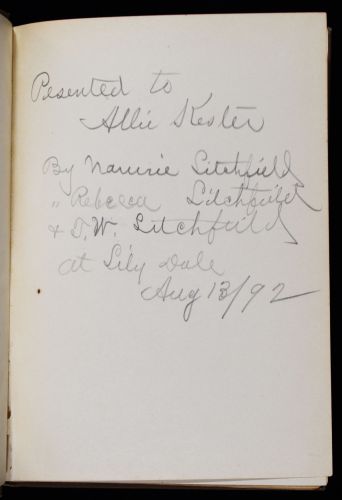 Pesented to
Allie Kester
By Nannie Litchfield
" Rebecca Litchfield
& T. W. Litchfield
at Lily Dale
Aug 13/92